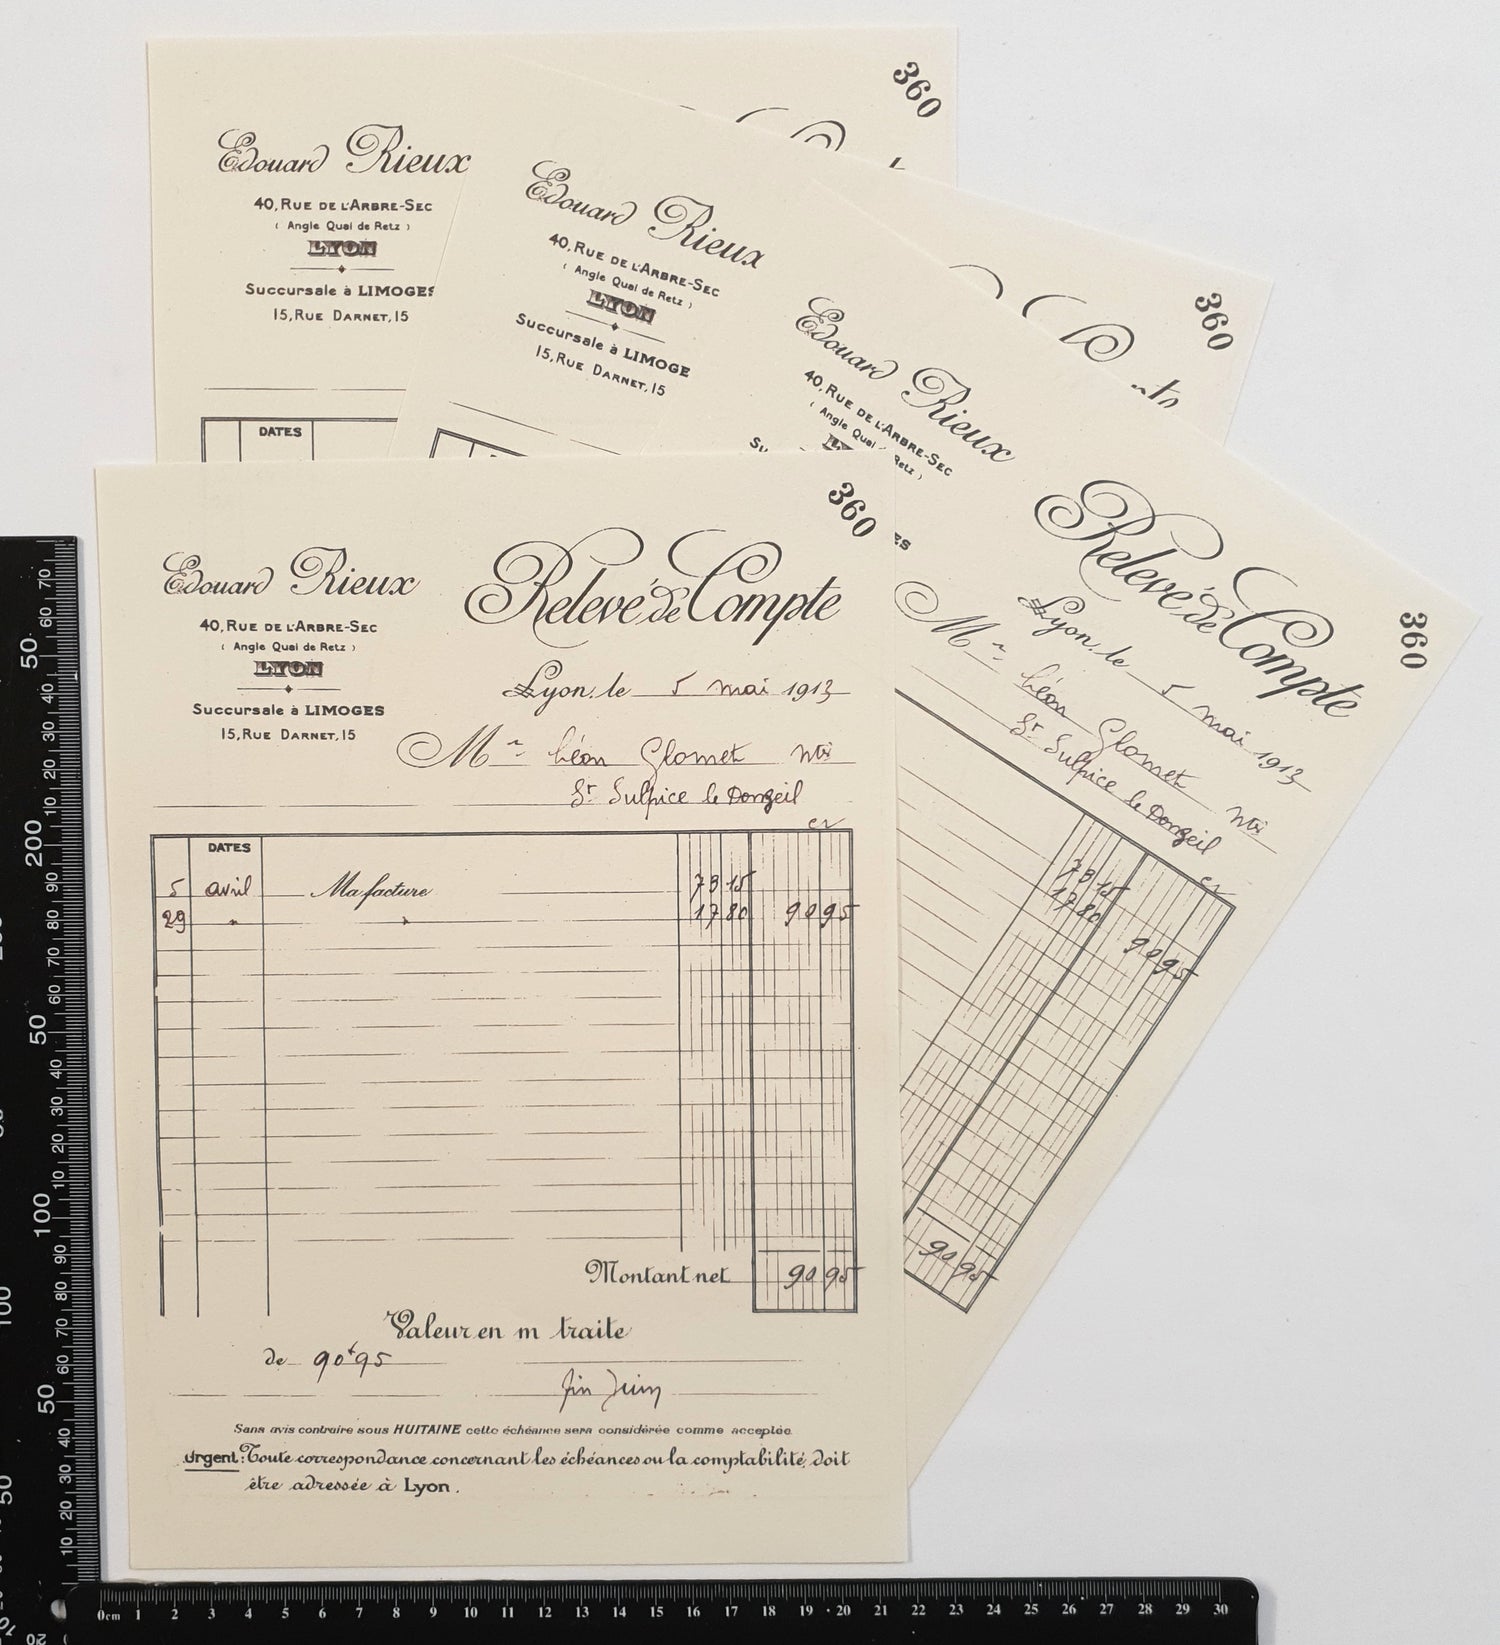 360
Edouard Rieux
40, RUE DE L'ARBRE-SEC
( Angle Quai de Retz )
LYON
Succursale à LIMOGES
15, RUE DARNET, 15
DATES
360
Edouard Rieux
40, RUE DE L'ARBRE-SEC
( Angle Quai de Retz )
LYON
Succursale à LIMOGE
15, RUE DARNET, 15
360
Edouard Rieux
40, RUE DE L'ARBRE-SEC
( Angle Quai Retz )
Relevé de Compte
Lyon, le 5 mai 1913
Mr Léon Glomet
St Sulpice le Donzeil
73 15
17 80
90 95
90 95
360
Edouard Rieux
Relevé de Compte
40, RUE DE L'ARBRE-SEC
( Angle Quai de Retz )
LYON
Succursale à LIMOGES
15, RUE DARNET, 15
Lyon, le 5 mai 1913
Mr Léon Glomet
St Sulpice le Donzeil
DATES
5 avril Ma facture 73 15
29 " " 17 80 90 95
Montant net 90 95
Valeur en m traite
de 90f95
fin Juin
Sans avis contraire sous HUITAINE cette échéance sera considérée comme acceptée.
Urgent: Toute correspondance concernant les échéances ou la comptabilité, doit
être adressée à Lyon.
70
60
50
40
30
20
10
200
90
80
70
60
50
40
30
20
10
100
90
80
70
60
50
40
30
20
10
0cm 1 2 3 4 5 6 7 8 9 10 11 12 13 14 15 16 17 18 19 20 21 22 23 24 25 26 27 28 29 30